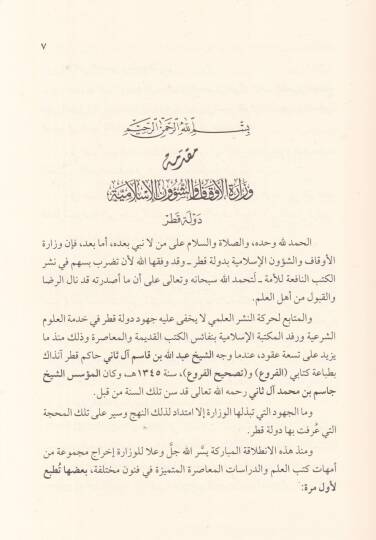 ٧
بسم الله الرحمن الرحيم
مقدمة
وزارة الأوقاف والشؤون الإسلامية
دولة قطر
الحمد لله وحده، والصلاة والسلام على من لا نبي بعده، أما بعد، فإن وزارة
الأوقاف والشؤون الإسلامية بدولة قطر ــ وقد وفقها الله لأن تضرب بسهم في نشر
الكتب النافعة للأمة ــ لتحمد الله سبحانه وتعالى على أن ما أصدرته قد نال الرضا
والقبول من أهل العلم.
والمتابع لحركة النشر العلمي لا يخفى عليه جهود دولة قطر في خدمة العلوم
الشرعية ورفد المكتبة الإسلامية بنفائس الكتب القديمة والمعاصرة وذلك منذ ما
يزيد على تسعة عقود، عندما وجه الشيخ عبد الله بن قاسم آل ثاني حاكم قطر آنذاك
بطباعة كتابي (الفروع) و(تصحيح الفروع)، سنة ١٣٤٥هـ، وكان المؤسس الشيخ
جاسم بن محمد آل ثاني رحمه الله تعالى قد سن تلك السنة من قبل.
وما الجهود التي تبذلها الوزارة إلا امتداد لذلك النهج وسير على تلك المحجة
التي عُرفت بها دولة قطر.
ومنذ هذه الانطلاقة المباركة يسَّر الله جلَّ وعلا للوزارة إخراج مجموعة من
أمهات كتب العلم والدراسات المعاصرة المتميزة في فنون مختلفة، بعضها تُطبع
لأول مرة: